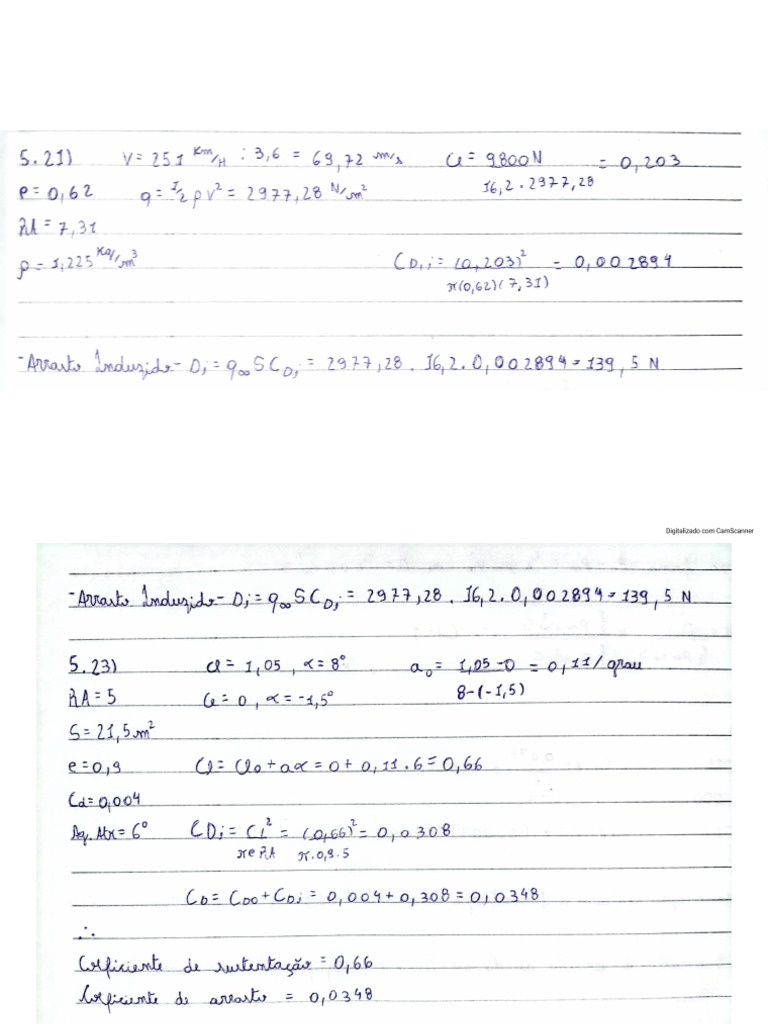 5.21) V = 251 Km/H : 3,6 = 69,72 m/s Cl = 9800N / 16,2 . 2977,28 = 0,203
e = 0,62 q = 1/2 ρV² = 2977,28 N/m²
RA = 7,31
ρ = 1,225 Kg/m³ CD,i = (0,203)² / π(0,62)(7,31) = 0,002894
-Arrasto Induzido- Di = q∞ S CDi = 2977,28 . 16,2 . 0,002894 = 139,5 N
Digitalizado com CamScanner
-Arrasto Induzido- Di = q∞ S CDi = 2977,28 . 16,2 . 0,002894 = 139,5 N
5.23) Cl = 1,05 , α = 8° a₀ = 1,05-0 / 8-(-1,5) = 0,11/grau
RA = 5 Cl = 0 , α = -1,5°
S = 21,5 m²
e = 0,9 Cl = Cl₀ + aα = 0 + 0,11 . 6 = 0,66
Cd = 0,004
Âg. Atx = 6° CDi = Cl² / πeRA = (0,66)² / π.0,9.5 = 0,0308
CD = CD0 + CDi = 0,004 + 0,308 = 0,0348
∴
Coeficiente de sustentação = 0,66
Coeficiente de arrasto = 0,0348